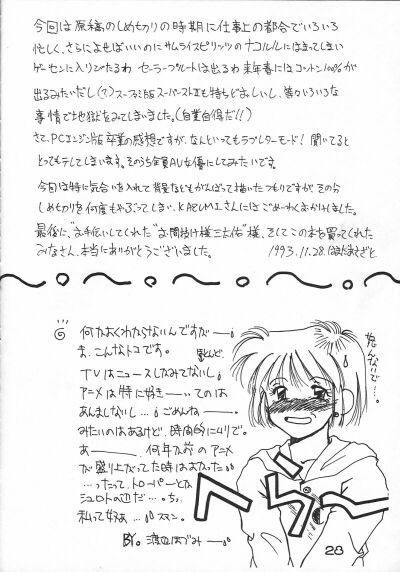 今回は原稿のしめ切りの時期に仕事上の都合でいろいろ
忙しく、さらによせばいいのにサムライスピリッツのナコルルにはまってしまい
ゲーセンに入りびたるわ セーラープルートは出るわ 来年春にはコットン100%が
出るみたいだし(了)スーファミ版スーパーストIIも待ちどおしいし、等々いろいろな
事情で地獄をみてしまいました。(自業自得だ!!)
さて、PCエンジン版卒業の感想ですが、なんといってもラブレターモード! 聞いてると
とってもテレてしまいます。そのうち全員AV女優にしてみたいです。
今回は特に気合いを入れて背景などもがんばって描いたつもりですが、その分
しめ切りを何度もやぶってしまい、KAZUMIさんにはごめーわくおかけしました。
最後に、お手伝いしてくれた"お間抜け様三太佑"様、そしてこの本を買ってくれた
みなさん、本当にありがとうございました。 1993.11.28.はまだあさぎと
何かよくわからないんですが――
ま、こんなトコです。
TVはニュースしかみてないし
アニメは特に好き――ってのは
あんましないし…。ごめんね――
みたいのはあるけど、時間的にムリで。
あ――、何年か前のアニメ
が盛り上がってた時はよかった
……ったって、トルーパーとか
シュロトの辺だ…。ちっ、
私って奴ぁ…。スマン。
BY。渡辺はづみ――
こんないで…。
へら〜
28